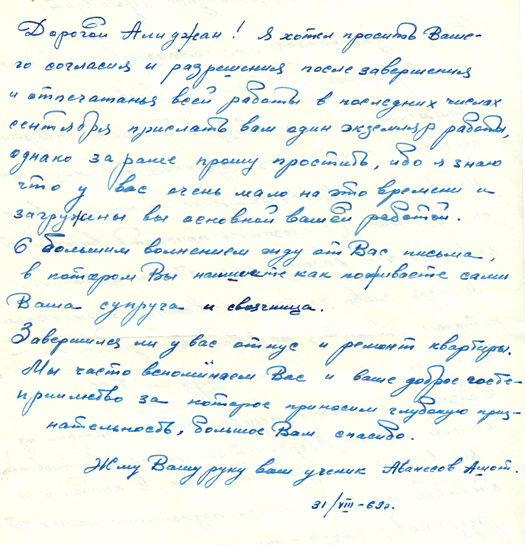 Дорогой Алиджан! Я хотел просить Ваше-
го согласия и разрешения после завершения
и отпечатанья всей работы в последних числах
сентября прислать вам один экземпляр работы,
однако за ранее прошу простить, ибо я знаю
что у вас очень мало на это времени и
загружены вы основной вашей работой.
С большим волнением жду от Вас письма,
в котором Вы напишете как поживаете сами
Ваша супруга и
Завершился ли у вас отпус и ремонт квартиры.
Мы часто вспоминаем Вас и ваше доброе госте-
приимство за которое приносим глубокую приз-
нательность, большое Вам спасибо.
Жму Вашу руку ваш ученик Аванесов Ашот.
31/VIII-69г.